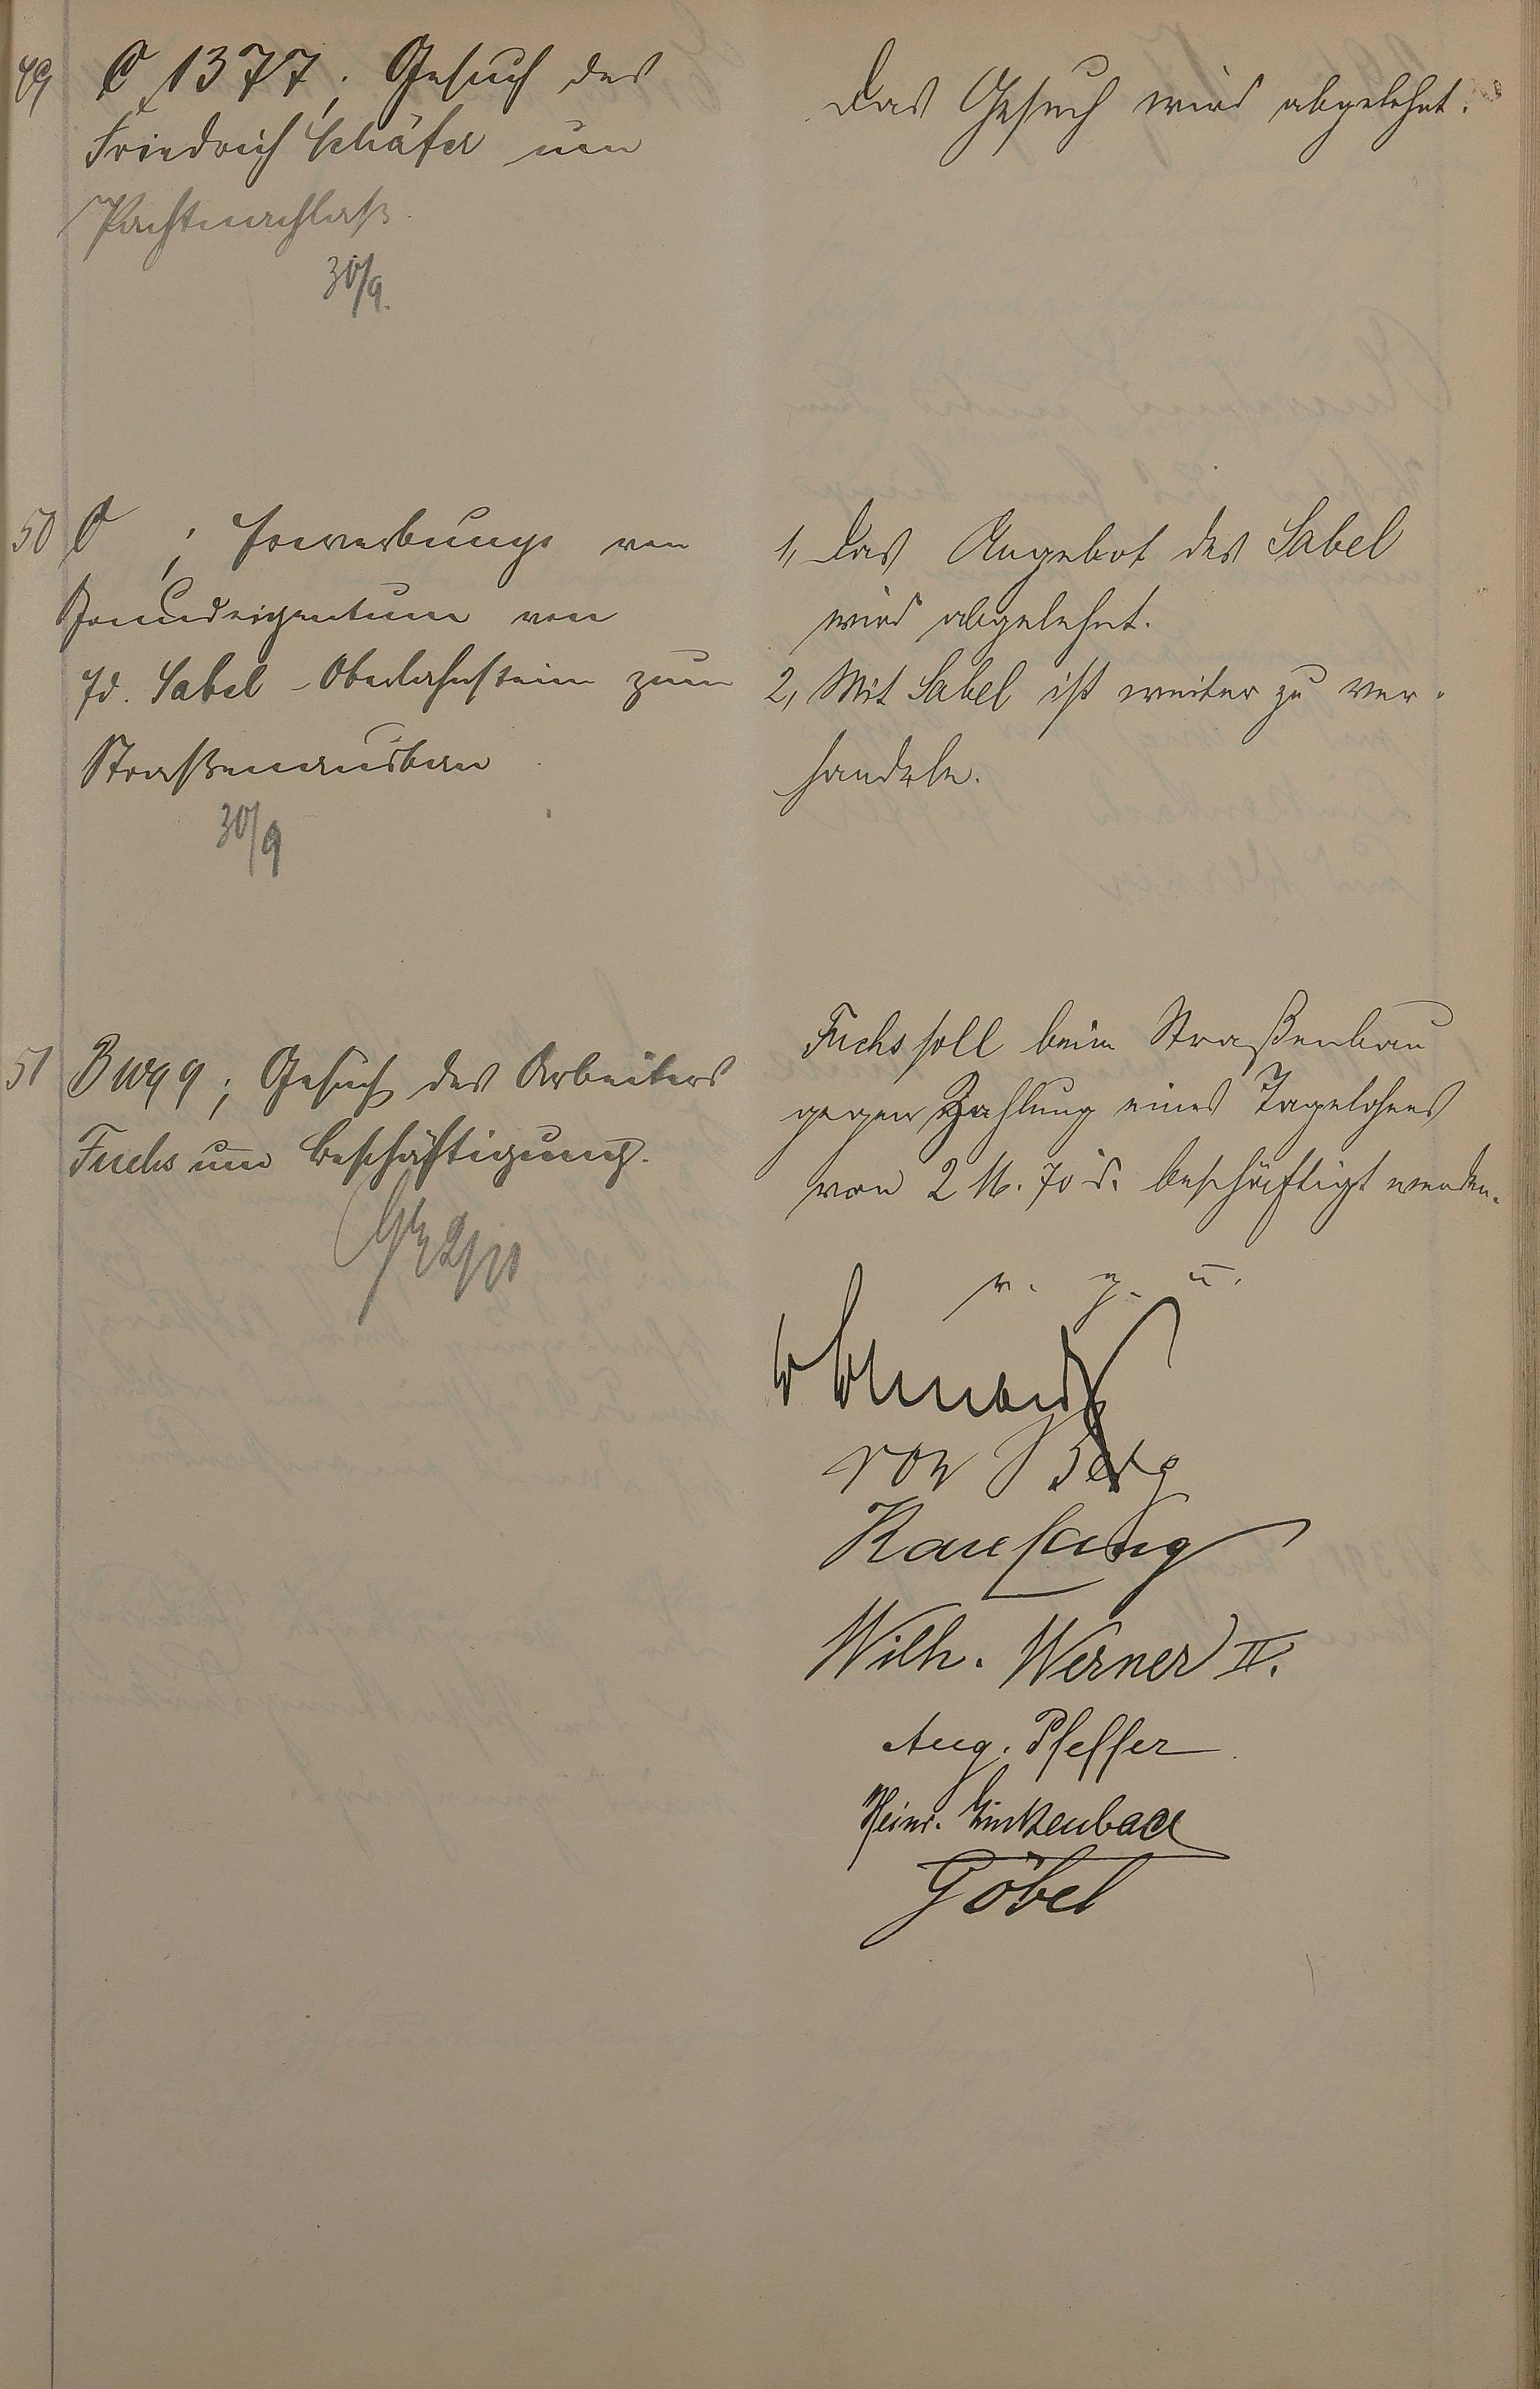 49 C 1377; Gesuch des
Friedrich Schäfer um
Pachtnachlaß.
30/9.
Das Gesuch wird abgelehnt.
50 C ; Erwerbung von
Grundeigentum von
Jd. Sabel - Oberlahnstein zum
Straßenausbau
30/9
1, Das Angebot des Sabel
wird abgelehnt.
2, Mit Sabel ist weiter zu ver-
handeln.
51 B 1199; Gesuch des Arbeiters
Fuchs um Beschäftigung.
2/10
Fuchs soll beim Straßenbau
gegen Zahlung eines Tagelohnes
von 2 M. 70 d. beschäftigt werden.
v. g. u.
von Berg
Kaufung
Wilh. Werner II.
Aug. Pfeffer
Heinr. Linkenbach
Göbel